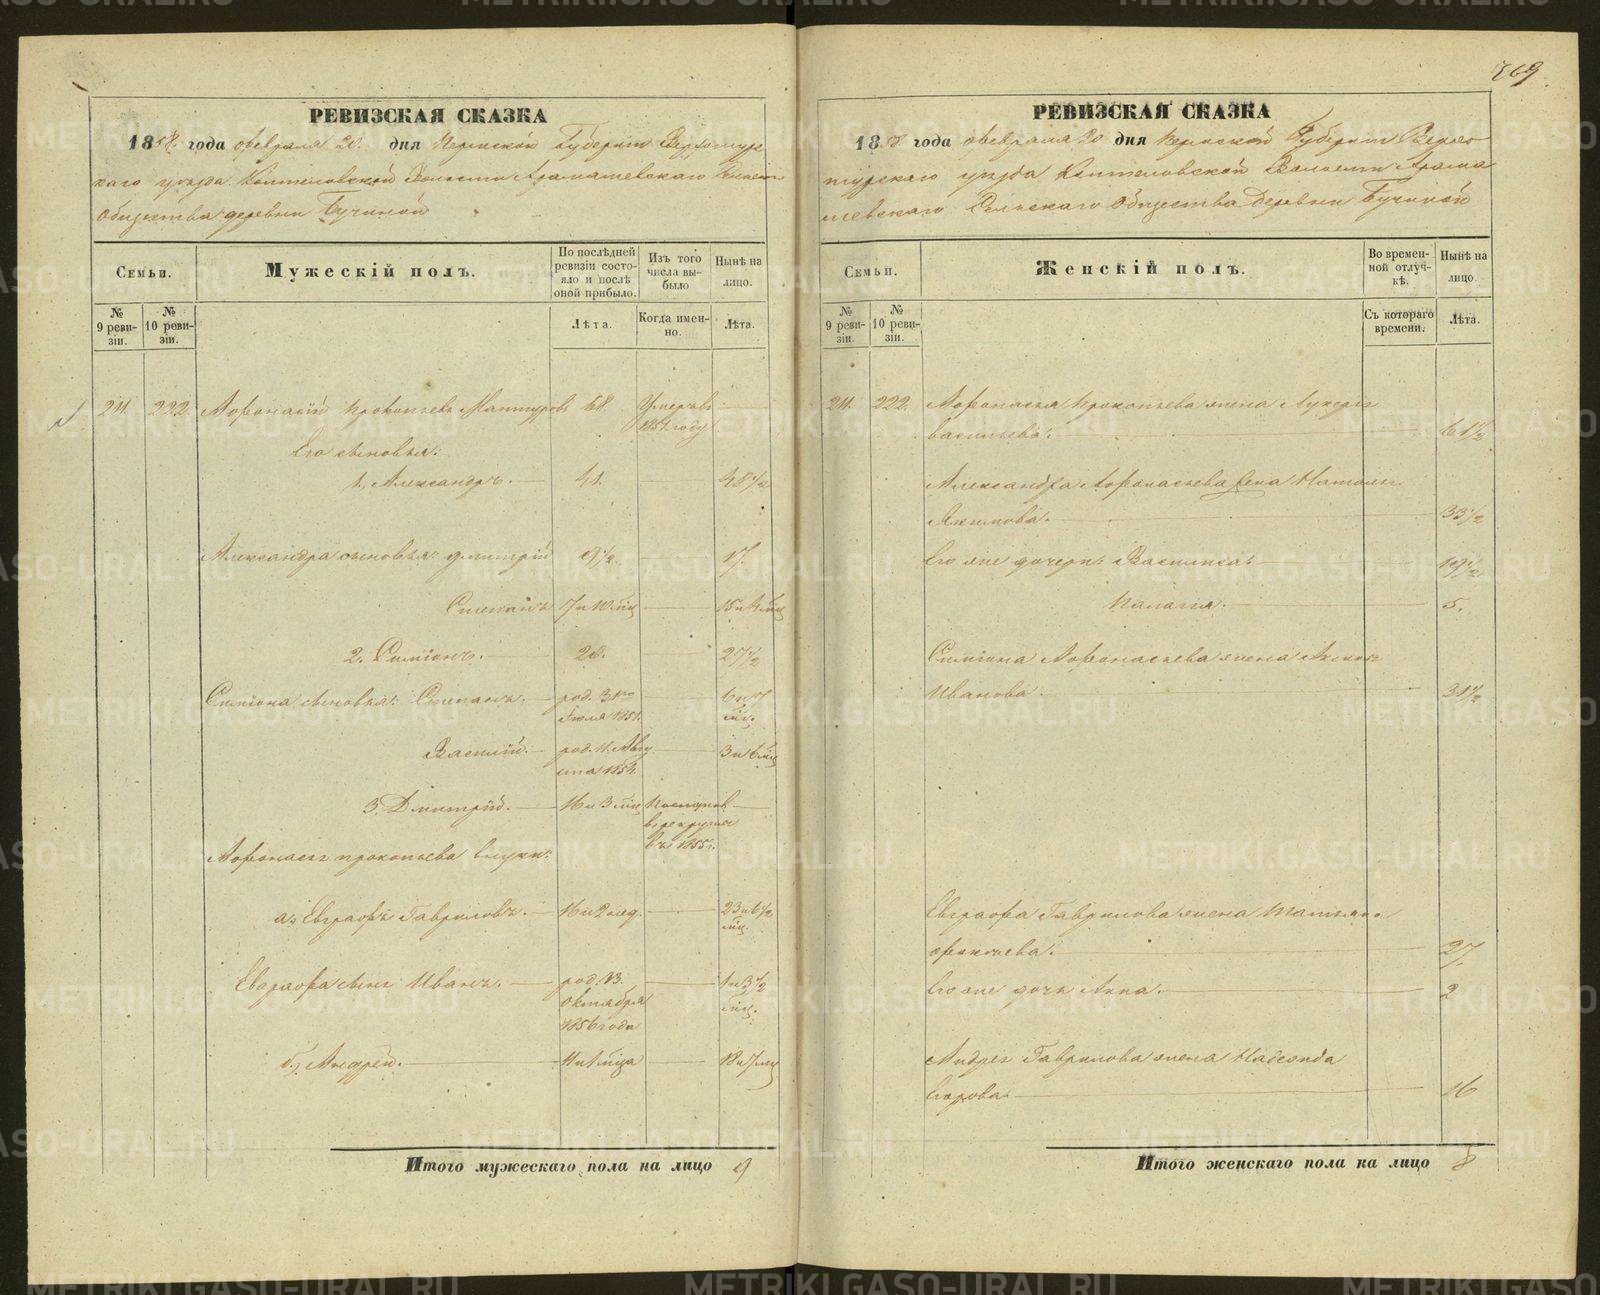 769
РЕВИЗСКАЯ СКАЗКА
1858 года февраля 20 дня Пермской Губернiи Верхотур
скаго уезда Коптеловской Волости Арамашевскаго Сельскаго
Общества деревни Бучиной
Семьи.
Мужескій полъ.
По послѣдней ревизіи состояло и послѣ оной прибыло.
Изъ того числа выбыло
Нынѣ на лицо.
№ 9 ревизіи.
№ 10 ревизіи.
Лѣта.
Когда именно.
Лѣта.
211. 222. Афонасій Прокопьевъ 68. Умеръ въ
1851 году
Его сыновья:
1, Александръ. 41. 48½
Александра сыновья: Дмитрій 9½ 17.
Степанъ 7 и 10 мѣц 15 и
2. Симіонъ. 20. 27½
Симіона сыновья: Степанъ. род. 31го 6 и 7
Іюля 1851. мѣц.
Василій. род. 11. Авгу 3 и 6 мѣц
ста 1854.
3, Дмитрій. 16 и 3 мѣц Поступ. въ рекруты
въ 1855 г.
Афонасья Прокопьева внуки:
а, Евграфъ Гавриловъ. 16 и 2 нед. 23 и 6½
мѣц.
Евграфа сынъ Иванъ. род. 13. 1 и 3½
Октября мѣц.
1856 года
б, Андрей. 11 и 1 мѣца 18 и 7 мц
Итого мужескаго пола на лицо 9
РЕВИЗСКАЯ СКАЗКА
1858 года февраля 20 дня Пермской Губернiи Верхо
турскаго уезда Коптеловской Волости Арама
шевскаго Сельскаго Общества Деревни Бучиной
Семьи.
Женскій полъ.
Во временной отлучкѣ.
Нынѣ на лицо.
№ 9 ревизіи.
№ 10 ревизіи.
Съ котораго времени.
Лѣта.
211. 222. Афонасья Прокопьева жена Лукерья
Васильева. 61½
Александра Афонасьева жена Наталья
Якимова. 33½
Его же дочери: Василиса. 19½
Палагія. 5.
Симіона Афонасьева жена
Иванова. 31½
Евграфа Гаврилова жена Татьяна
27.
Его же дочь Анна. 2
Андрея Гаврилова жена Надежда
Егорова 16
Итого женскаго пола на лицо 8
METRIKI.GASO-URAL.RU